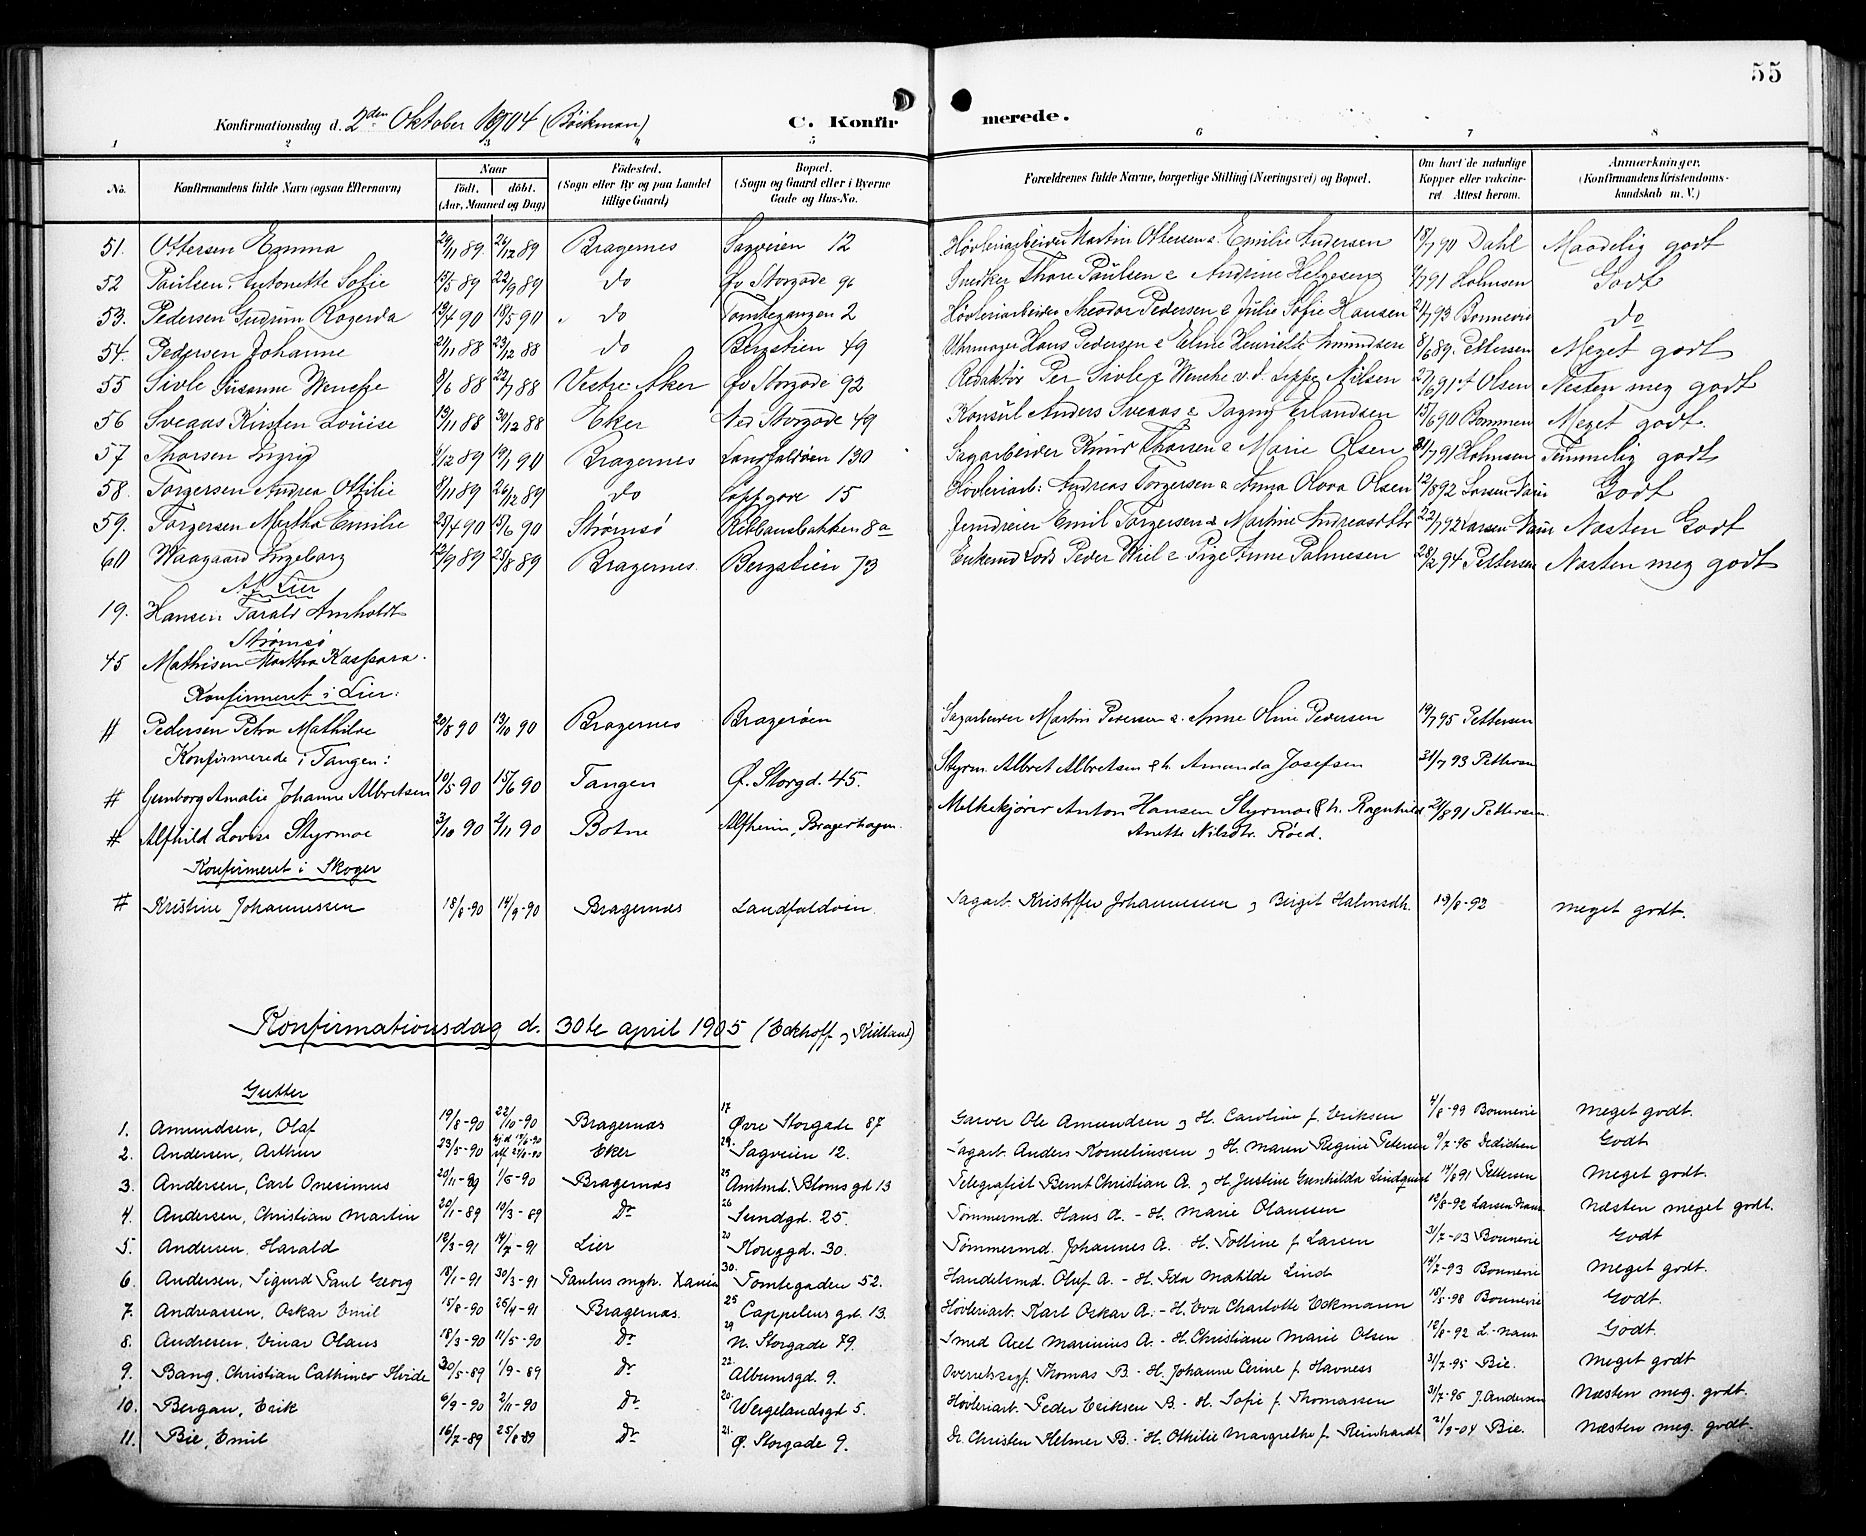 55
Konfirmationsdag d. 2den Oktober 1904 (Böckman) C. Konfirmerede.
1 2 3 4 5 6 7 8
No. Konfirmandens fulde Navn (ogsaa Efternavn) Naar født. døbt. (Aar, Maaned og Dag) Fødested. (Sogn eller By og paa Landet tillige Gaard) Bopæl. (Sogn og Gaard eller i Byerne Gade og Hus-No. Forældrenes fulde Navne, borgerlige Stilling (Næringsvei) og Bopæl. Om havt de naturlige Kopper eller vakcineret. Attest herom. Anmærkninger. (Konfirmandens Kristendomskundskab m. V.)
51. Ottersen Emma 29/11 89. 26/12 89 Bragernes Sagveien 12 Høvleriarbeider Martin Ottersen & Emilie Andersen 18/7 90 Dahl Maadelig godt
52 Paulsen, Antonette Sofie 15/5 89 22/9 89 do Øv Storgade 96 Snedker Thore Paulsen & Andrine Helgesen 7/7 91 Holmsen Godt
53. Pedersen Gudrun Rogerda 13/4 90 18/5 90 do Tomtegangen 2 Høvleriarbeider Theodor Pedersen & Julie Sofie Hansen 24/7 93 Bonnevie do
54. Pedersen Johanne 21/11 88 23/12 88 do Bergstien 49 Uhrmager Hans Pedersen & Eline Henriette Amundsen 8/6 89. Pettersen Meget godt
55 Sivle Susanne Wencke 8/6 88 22/7 88 Vestre Aker Øv Storgade 92 Redaktør Per Sivle & Wenche v. d. Lippe Nilsen 27/6 91 A Olsen Næsten meg godt
56 Sveaas Kirsten Louise 13/11 88 30/12 88 Eker Ned Storgade 49 Konsul Anders Sveaas & Dagny Erlandsen 13/6 90 Bommen Meget godt.
57 Thorsen Ingrid 1/12 89 19/1 90 Bragernes Landfaldøien 130 Sagarbeider Knud Thorsen & Marie Olsen 31/7 91 Holmsen Temmelig godt
58. Torgersen Andrea Ottilie 8/11 89 26/12 89 do Coppgade 15 Høvleriarb: Andreas Torgersen & Anna Olava Olsen 12/8 92 Larsen Naur Godt
59. Torgersen Martha Emilie 23/4 90 15/6 90 Strømsø Reblansbakken 8a Jerndreier Emil Torgersen & Martine Andreasdttr 22/7 92 Larsen Naur Næsten Godt
60 Waagaard Ingeborg 12/9 89 25/8 89 Bragernes. Bergstien 73 Enkemd Lods Peder Wiel & Pige Anne Palmesen 28/2 94 Pettersen Næsten meg godt
Af Lier
19. Hansen Tarald Arnholdt
Strømsø
45 Mathisen Martha Kaspara.
Konfirmeret i Lier:
# Pedersen Petra Mathilde 20/8 90 13/10 90 Bragernes Bragerøen Sagarbeider Martin Pedersen & Anne Oline Pedersen 19/7 95 Pettersen
Konfirmerede i Tangen:
# Gunborg Amalie Johanne Albretsen 10/5 90 15/6 90 Tangen Ø. Storgd. 45. Styrm. Albret Albretsen & h. Amanda Josefsen 31/7 93 Pettersen
# Alfhild Lovise Styrmoe 3/10 90 2/11 90 Botne Alfheim, Bragerhagen. Melkekjører Anton Hansen Styrmoe & h. Ragnhild 21/8 91 Pettersen
Anette Nilsdtr. Røed.
Konfirmeret i Skoger
# Kristine Johannessen 18/8-90 14/9-90 Bragernæs Landfaldøien. Sagarb. Kristoffer Johannessen og Birgit Halvorsdtr. 19/8-92 meget godt.
Konfirmationsdag d. 30te april 1905 (Eckhoff og Kielland)
Gutter
1. Amundsen, Olaf 19/8-90 22/10-90 Bragernæs 17 Øvre Storgade 87 Garver Ole Amundsen og H. Caroline f. Eriksen 4/8-99 Bonnevie Meget godt.
2. Andersen, Arthur 23/5-90 Eker 29. Sagveien 12. Sagarb. Anders Kornelinssen og H. Maren Regine Petersen 9/7-96 Dedichen Godt
3. Andersen, Carl Onesimus 20/11-89 1/6-90 Bragernæs 25 Amtmd. Bloms gd 13 Telegrafist Bernt Christian A. og H. Justine Gunhilda Lindquist 14/8 91 Pettersen Meget godt.
4. Andersen, Christian Martin 20/1-89 10/3-89 Do 26 Sundgd. 25. Tømmermd. Hans A. - H. Marie Olaussen 12/8-92 Larsen Naur Næsten meget godt.
5. Andersen, Harald 12/3-91 14/7-91 Lier 20 Konggd. 30. Tømmermd. Johannes A. H. Tolline f. Larsen 31/7-03 Bonnevie Godt
6. Andersen, Sigurd Paul Georg 18/1-91 30/3-91 Paulus mgh. Xania 30. Tomtegaden 52. Handelsmd. Oluf A. - H. Ida Matilde Lind 14/7-93 Bonnevie Meget godt.
7. Andreassen, Oskar Emil 15/8-90 26/4-91 Bragernæs. 25 Cappelens gd. 13. Høvleriarb. Karl Oskar A. - H. Eva Charlotte Eckmann 18/5-98 Bonnevie Godt.
8. Andresen, Einar Olaus 18/3-90 11/5-90 Do 29 N. Storgade 79. Smed Axel Marinius A. - H. Christiane Marie Olsen 12/8-92 L. Naur Godt.
9. Bang, Christian Cathinco Hvide 30/5-89 1/9-89 Do 22. Albumsgd. 9. Overretssagf. Thomas B. - H. Johanne Cerine f. Havness 31/7-95 Bie. Meget godt
10. Bergan, Erik 6/9-90 2/11-90 Do 20. Wergelandsgd 5. Høvleriarb. Peder Eriksen B. - H. Sofie f. Thomassen 31/7-96 J. Andersen Næsten meg. godt.
11. Bie, Emil 16/7-89 25/8 89 Do 21. Ø. Storgade 9. Dr. Christen Helmer B. - H. Othilie Margrethe f. Reinhardt 21/9-04 Bie. Næsten meg. godt.